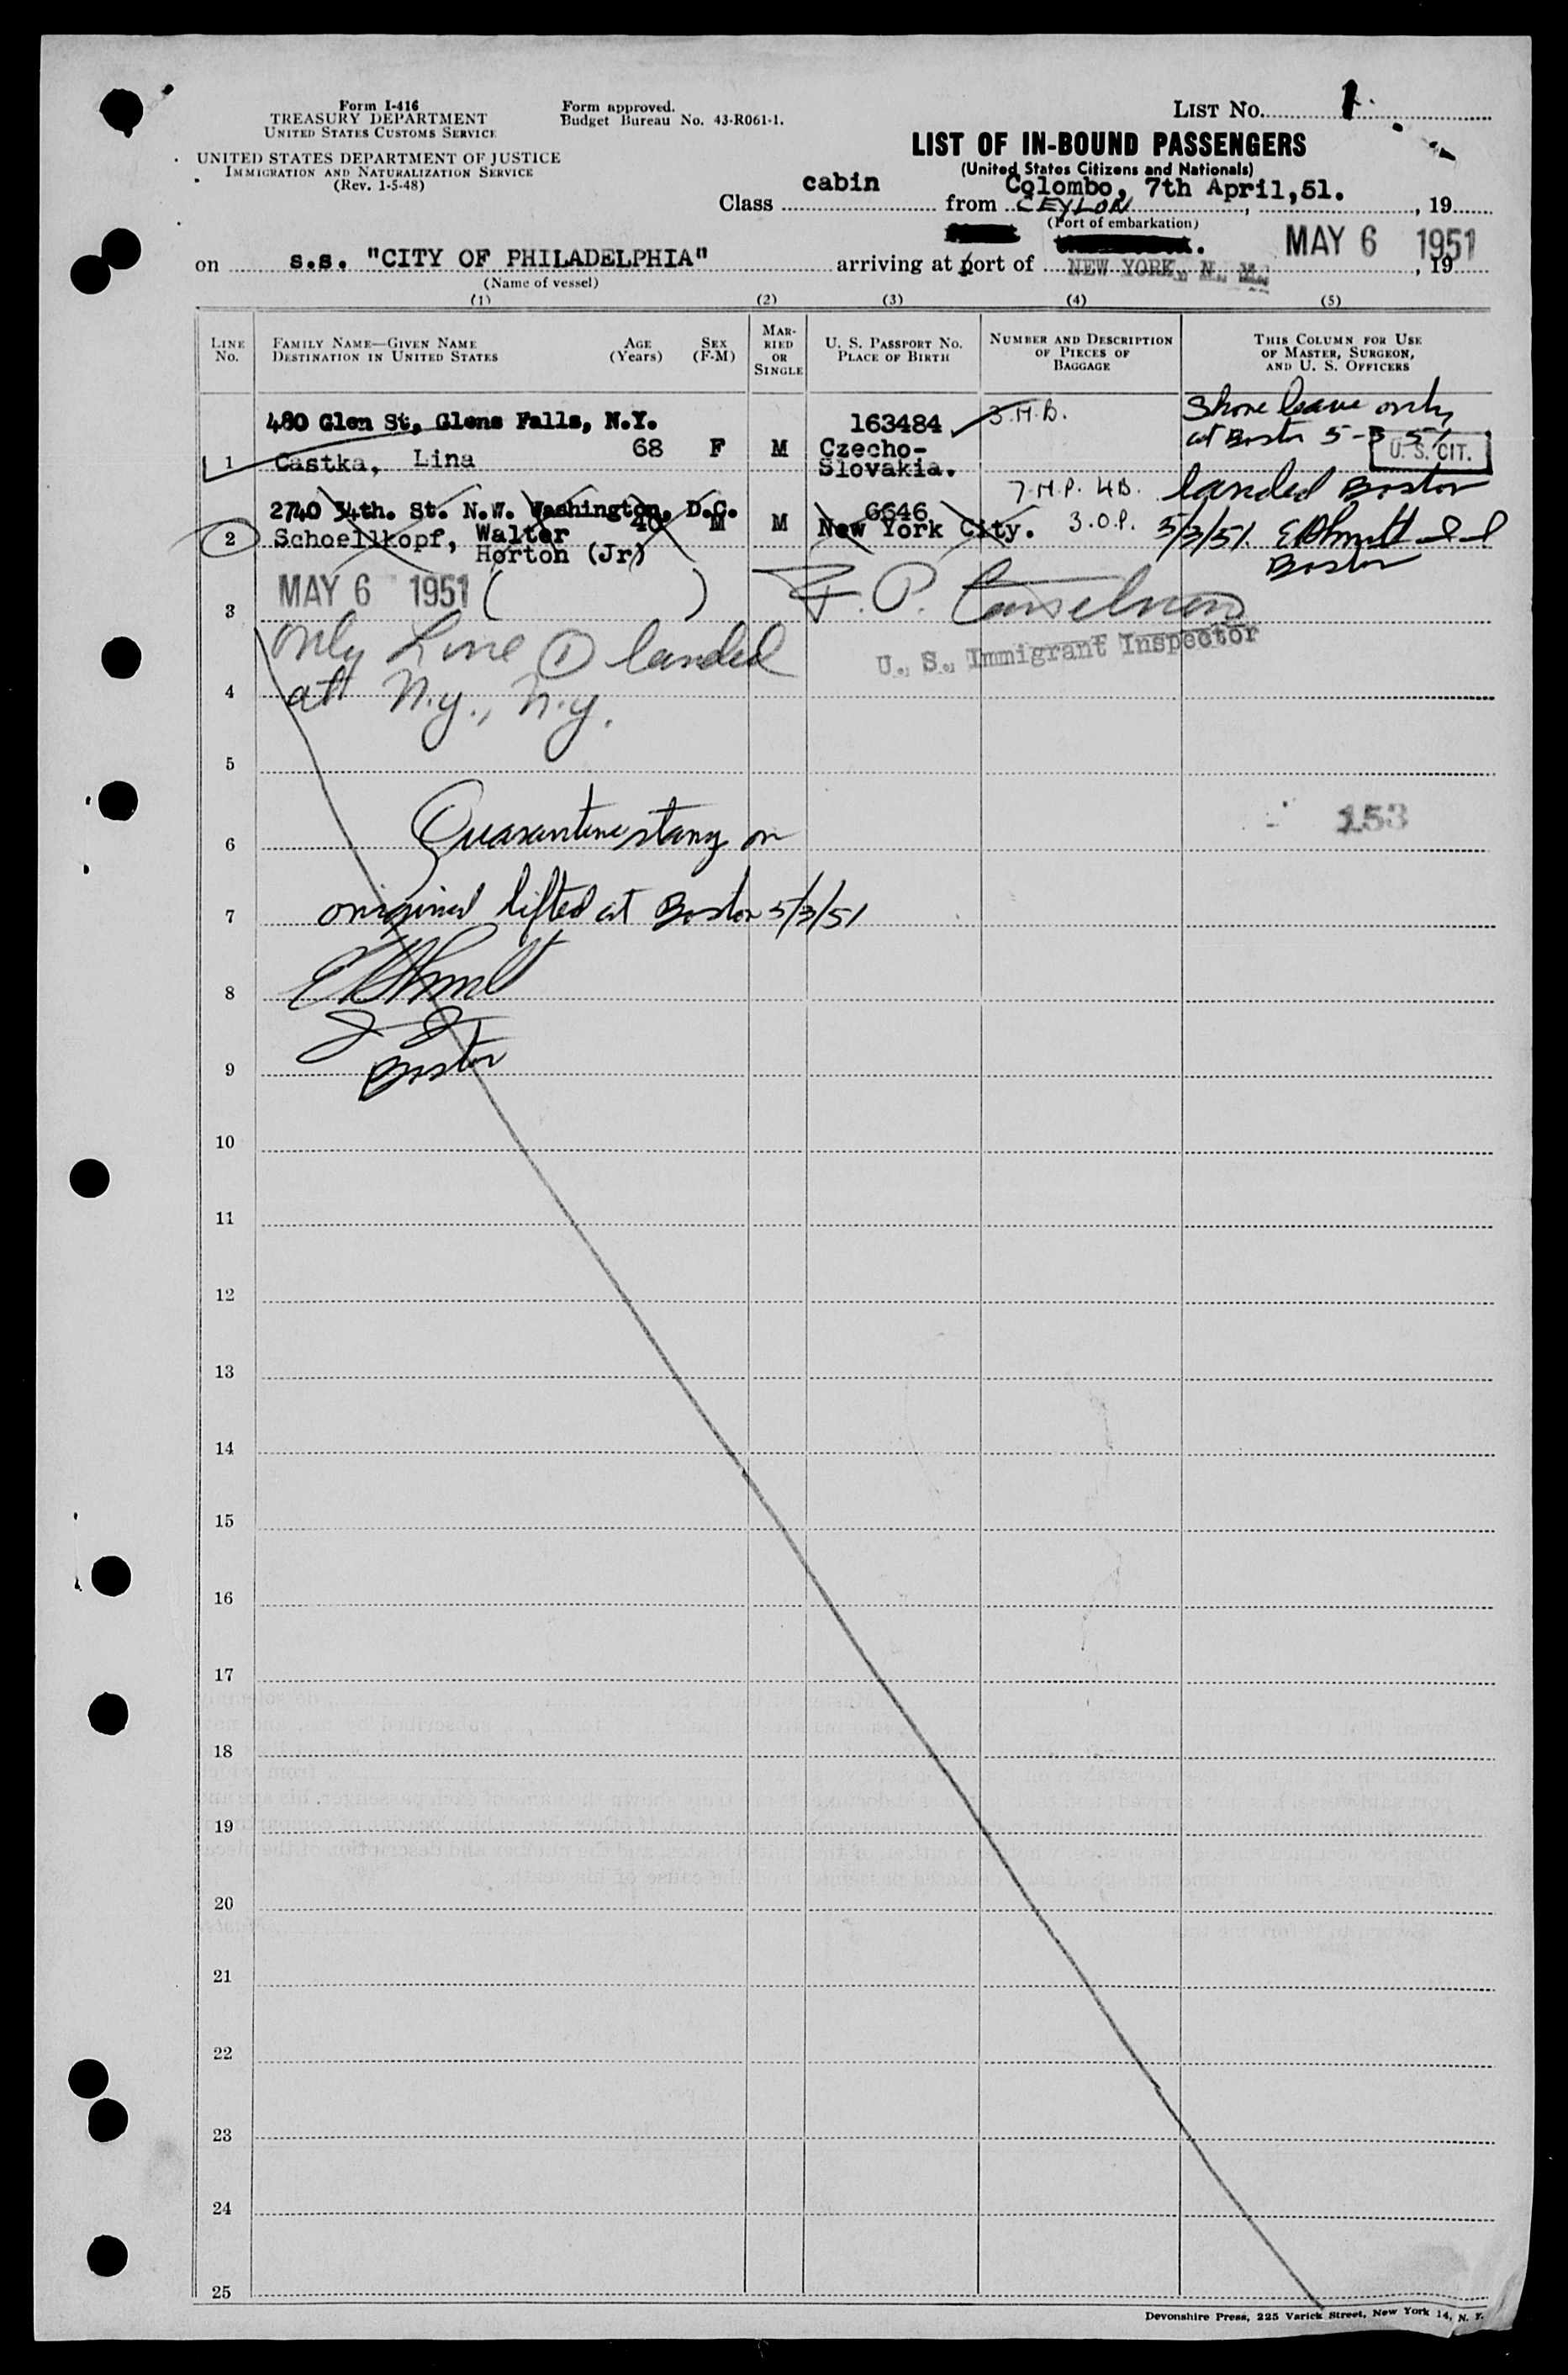 Form I-416
TREASURY DEPARTMENT
UNITED STATES CUSTOMS SERVICE
UNITED STATES DEPARTMENT OF JUSTICE
IMMIGRATION AND NATURALIZATION SERVICE
(Rev. 1-5-48)
Form approved.
Budget Bureau No. 43-R061-1.
LIST No. 1
LIST OF IN-BOUND PASSENGERS
(United States Citizens and Nationals)
Class cabin from Colombo, 7th April, 51. , 19
CEYLON
(Port of embarkation)
on s.s. "CITY OF PHILADELPHIA" arriving at port of NEW YORK, N. Y. MAY 6 1951 , 19
(Name of vessel)
(1) (2) (3) (4) (5)
LINE No.
FAMILY NAME—GIVEN NAME
DESTINATION IN UNITED STATES
AGE (Years)
SEX (F-M)
MARRIED OR SINGLE
U. S. PASSPORT NO.
PLACE OF BIRTH
NUMBER AND DESCRIPTION OF PIECES OF BAGGAGE
THIS COLUMN FOR USE OF MASTER, SURGEON, AND U. S. OFFICERS
480 Glen St, Glens Falls, N.Y. 163484 3.H.B. Shore leave only
at Boston 5-3 51
1 Castka, Lina 68 F M Czecho-Slovakia. U. S. CIT.
2740 34th. St. N.W. Washington, D.C. 6646 7.H.P. 4B. landed Boston
2 Schoellkopf, Walter Horton (Jr) 40 M M New York City. 3.O.P. 5/3/51.
Boston
MAY 6 1951 ( ) F. P.
3
U. S. Immigrant Inspector
only Line 1 landed
4 at N.Y., N.Y.
5
153
6 Quarantine on
7 original lifted at Boston 5/3/51
8
9 Boston
10
11
12
13
14
15
16
17
18
19
20
21
22
23
24
25
Devonshire Press, 225 Varick Street, New York 14, N. Y.